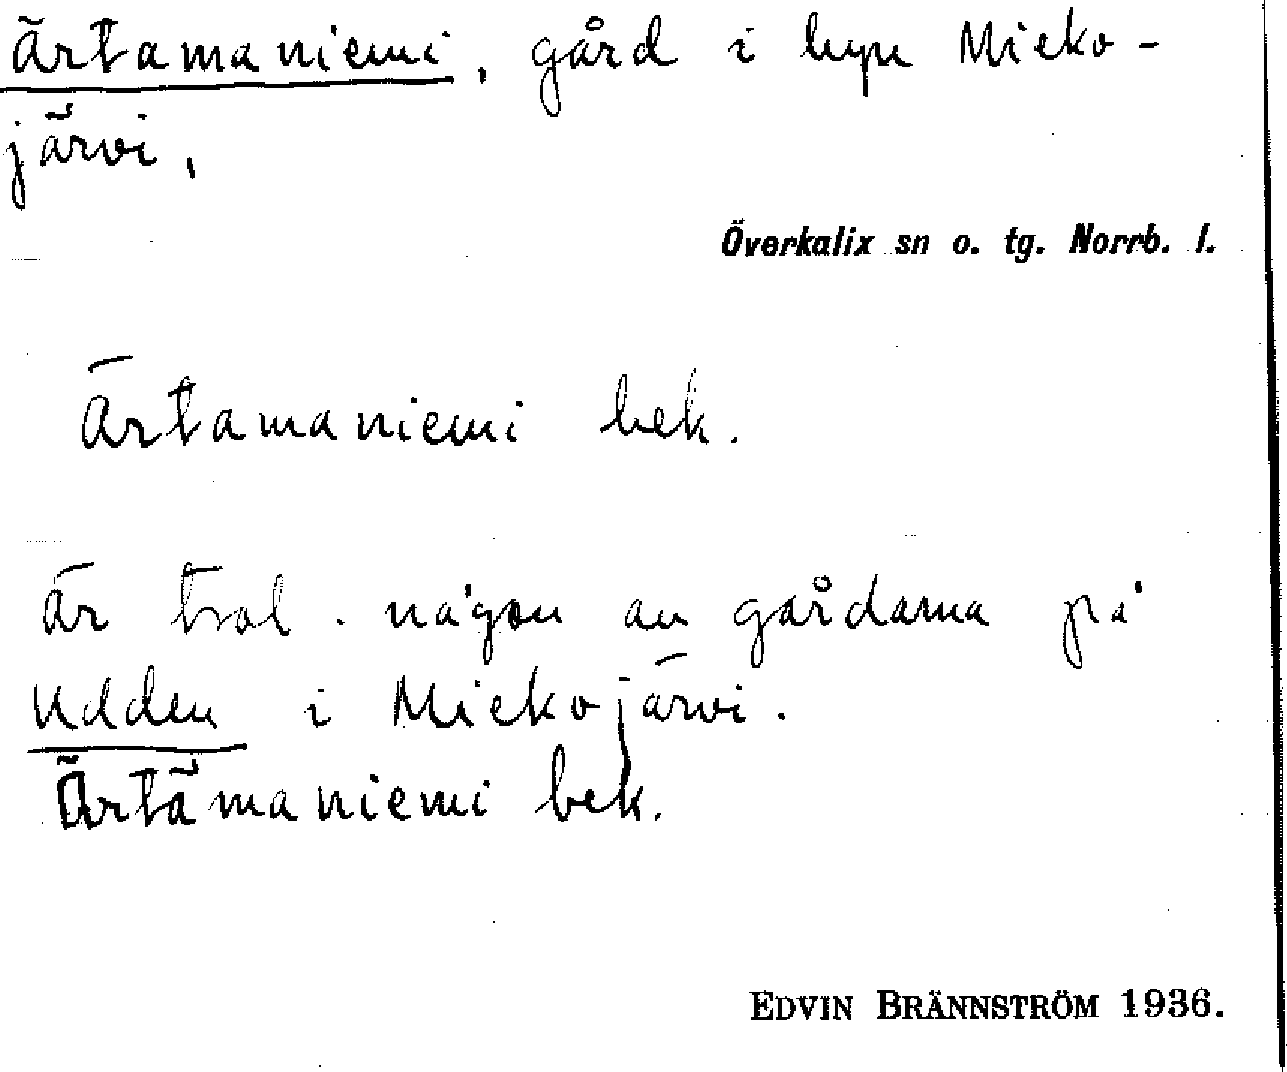 Ärtamaniemi, gård i byn Mieko-
järvi,
Överkalix sn o. tg. Norrb. l.
Ärtamaniemi bek.
Är trol. någon av gårdarna på
Udden i Miekojärvi.
Ärtämaniemi bek.
EDVIN BRÄNNSTRÖM 1936.